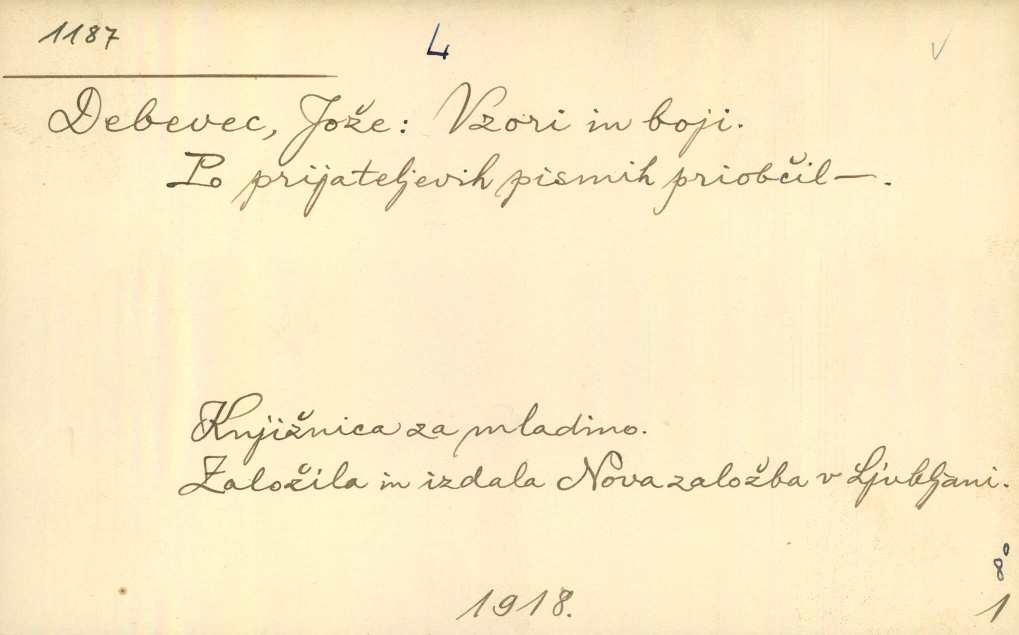 1187
L
Debevec, Jože: Vzori in boji.
Po prijateljevih pismih priobčil — .
Knjižnica za mladino.
Založila in izdala Nova založba v Ljubljani.
8°
1918.
1